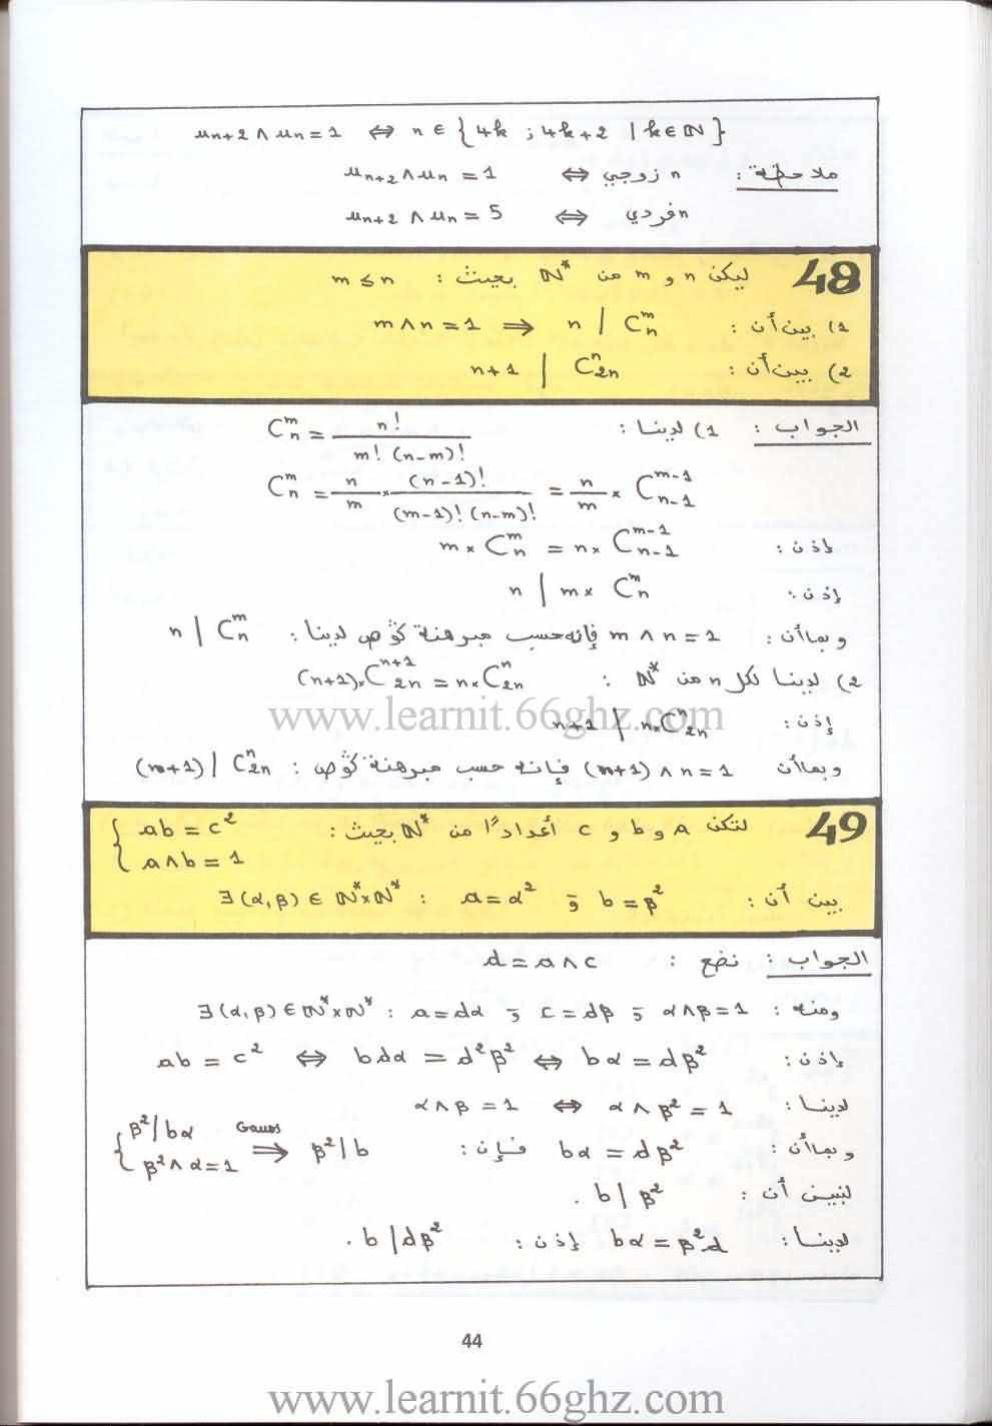 u_{n+2} ∧ u_n = 1 ⇔ n ∈ {4k ; 4k+2 | k ∈ ℕ}
ملاحظة : n زوجي ⇔ u_{n+2} ∧ u_n = 1
n فردي ⇔ u_{n+2} ∧ u_n = 5
48 ليكن n و m من ℕ* بحيث : m ≤ n
1) بين أن : m ∧ n = 1 ⇒ n | C_n^m
2) بين أن : n+1 | C_{2n}^n
الجواب : 1) لدينا : C_n^m = n! / (m! (n-m)!)
C_n^m = n/m × (n-1)! / ((m-1)! (n-m)!) = n/m × C_{n-1}^{m-1}
إذن : m × C_n^m = n × C_{n-1}^{m-1}
إذن : n | m × C_n^m
وبما أن : m ∧ n = 1 فإنه حسب مبرهنة كوص لدينا : n | C_n^m
2) لدينا لكل n من ℕ* : (n+1) × C_{2n}^{n+1} = n × C_{2n}^n
إذن : n+1 | n × C_{2n}^n
وبما أن (n+1) ∧ n = 1 فإنه حسب مبرهنة كوص : (n+1) | C_{2n}^n
49 لتكن a و b و c أعدادًا من ℕ* بحيث : { ab = c²
a ∧ b = 1
بين أن : ∃(α,β) ∈ ℕ*×ℕ* : a = α² ; b = β²
الجواب : نضع : d = a ∧ c
ومنه : ∃(α,β) ∈ ℕ*×ℕ* : a = dα ; c = dβ ; α ∧ β = 1
إذن : ab = c² ⇔ bdα = d²β² ⇔ bα = dβ²
لدينا : α ∧ β = 1 ⇔ α ∧ β² = 1
وبما أن : bα = dβ² فإن : { β²/bα
β² ∧ α = 1 Gauss ⇒ β²/b
لنبين أن : b | β² .
لدينا : bα = β²d إذن : b | dβ² .
www.learnit.66ghz.com
44
www.learnit.66ghz.com